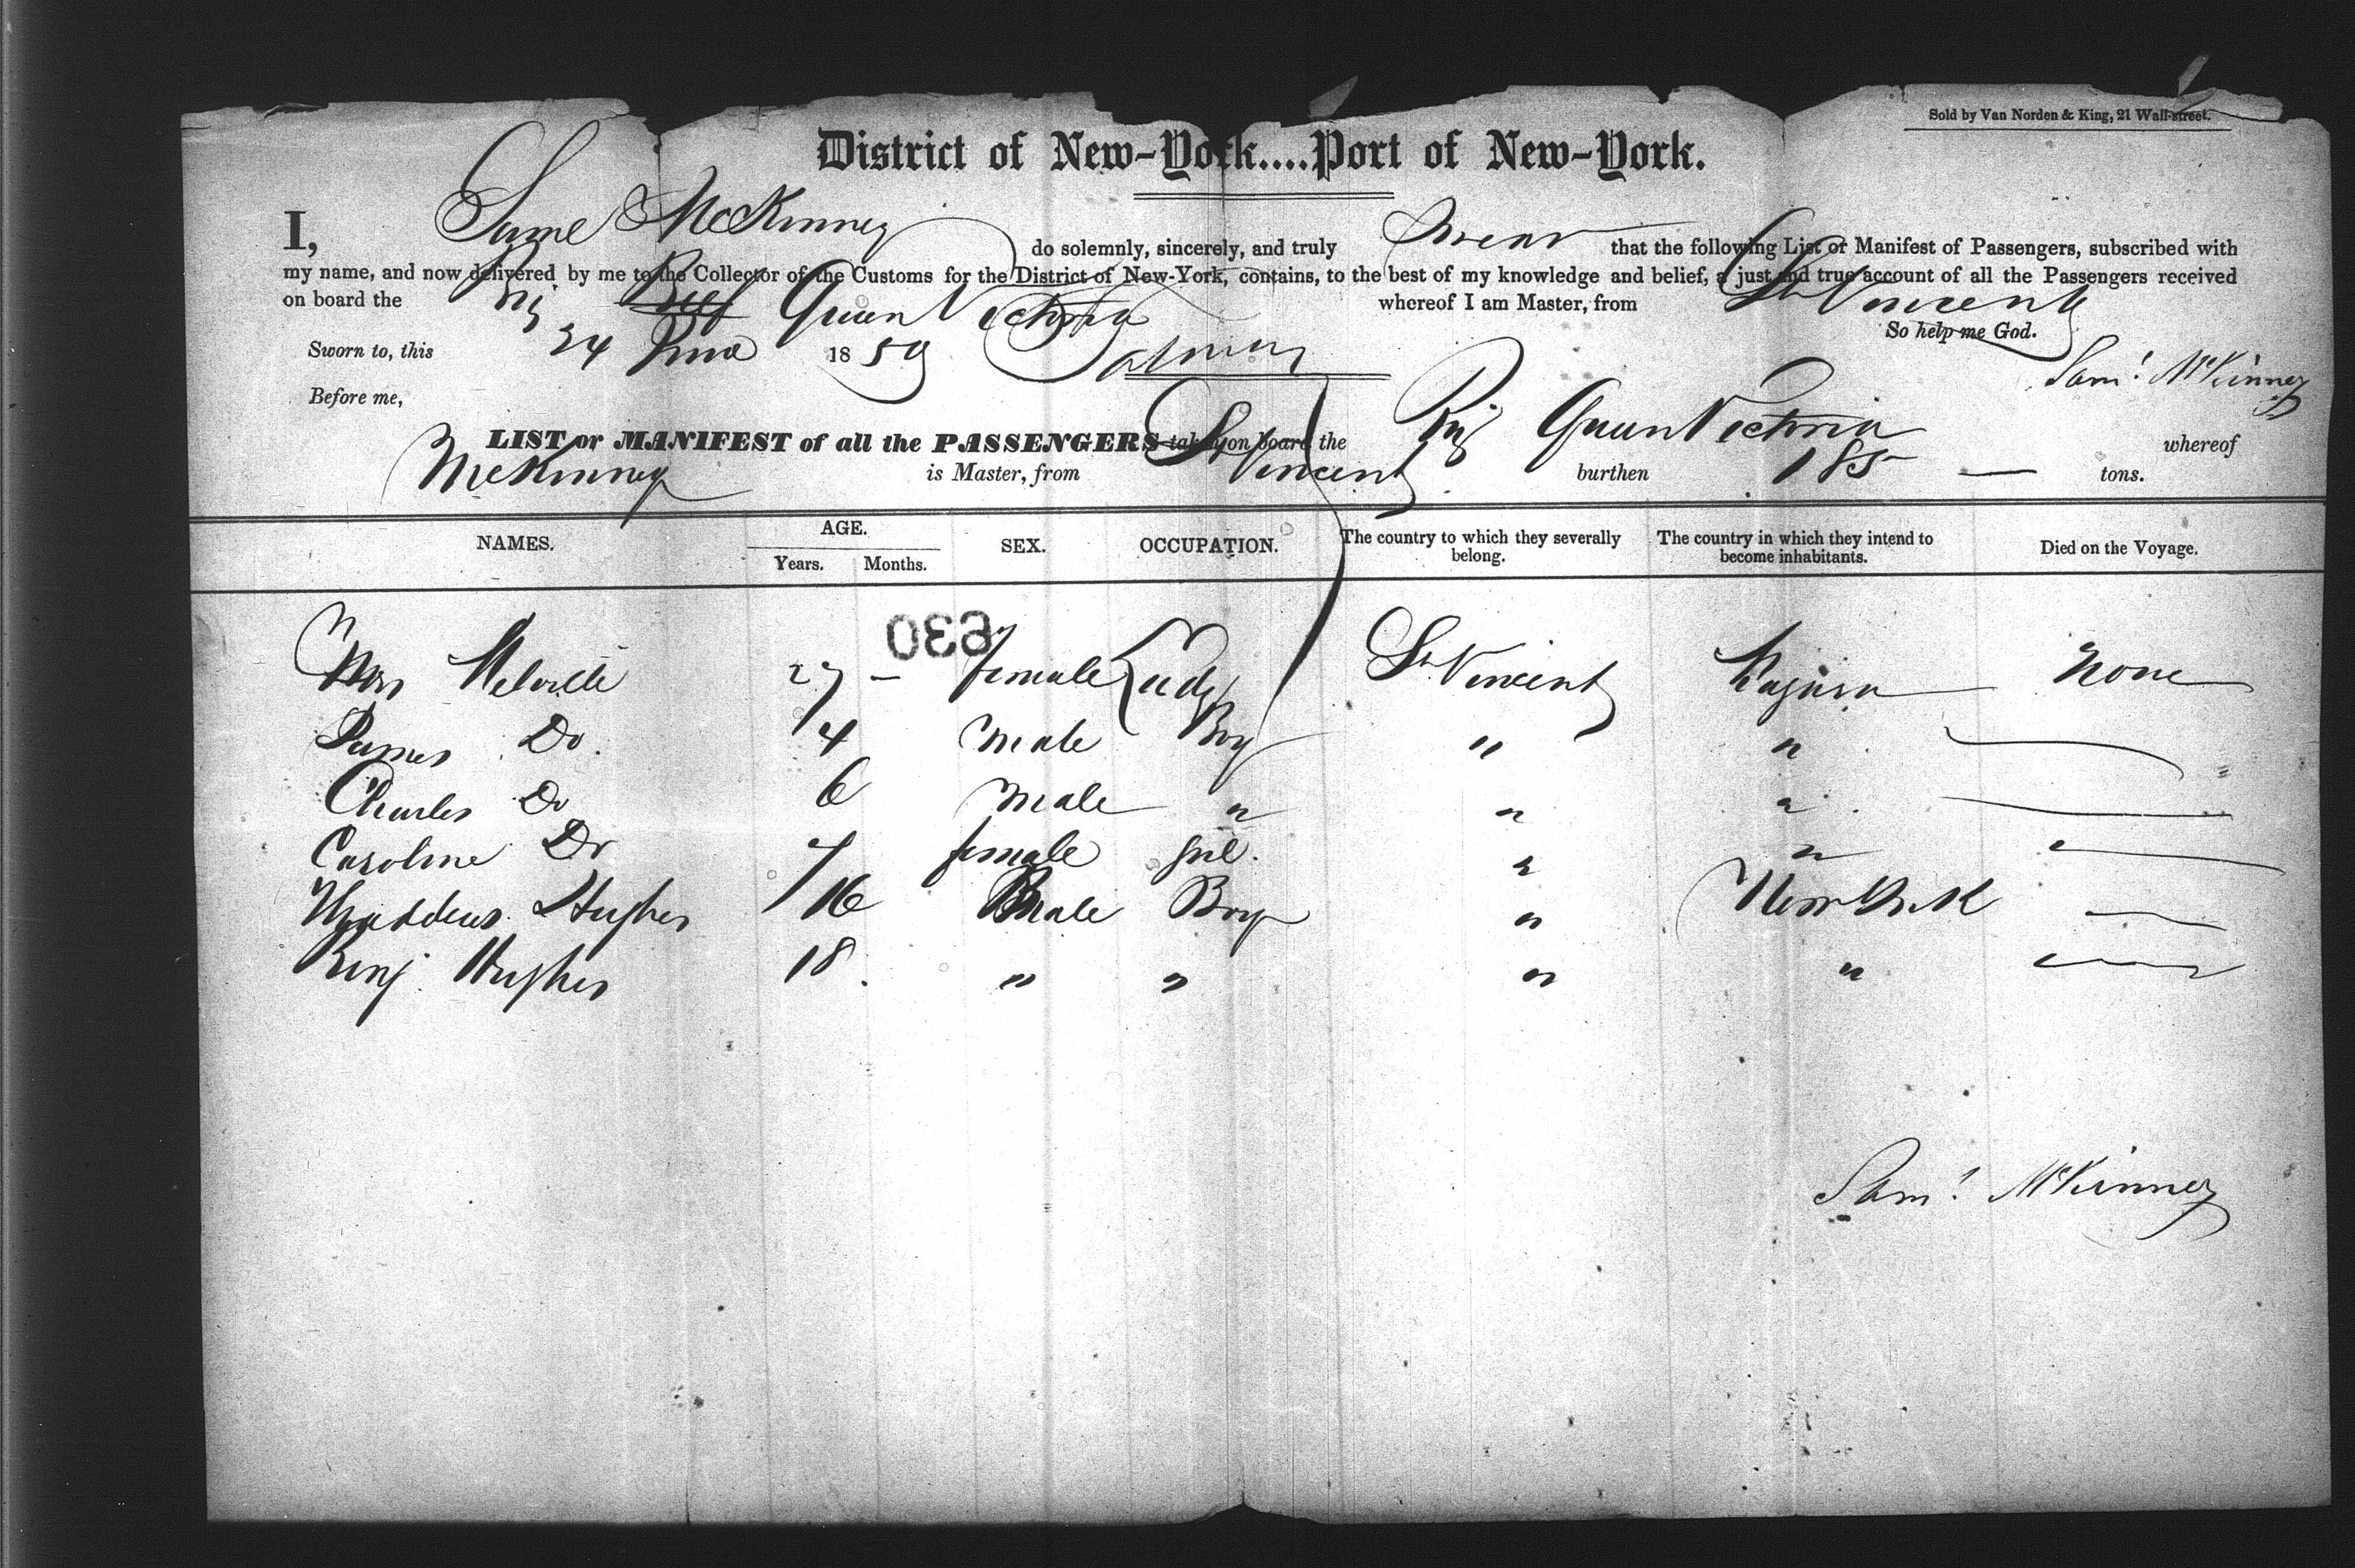 Sold by Van Norden & King, 21 Wall-street.
District of New-York....Port of New-York.
I, Saml McKinney do solemnly, sincerely, and truly swear that the following List or Manifest of Passengers, subscribed with
my name, and now delivered by me to the Collector of the Customs for the District of New-York, contains, to the best of my knowledge and belief, a just and true account of all the Passengers received
on board the Brig Queen Victoria whereof I am Master, from St Vincent
So help me God.
Sworn to, this 24 June 1859
Saml McKinney
Before me,
LIST or MANIFEST of all the PASSENGERS taken on board the Brig Queen Victoria whereof
McKinney is Master, from St Vincent burthen 185 — tons.
NAMES. AGE. Years. Months. SEX. OCCUPATION. The country to which they severally belong. The country in which they intend to become inhabitants. Died on the Voyage.
630
Mrs Melville 27 — female Lady St Vincent None
James Do. 4 Male Boy " "
Charles Do 6 Male " " "
Caroline Do 7 female girl. " "
Thaddeus Hughes 16 Male Boy " New York
Benj. Hughes 18 " " " "
Saml McKinney